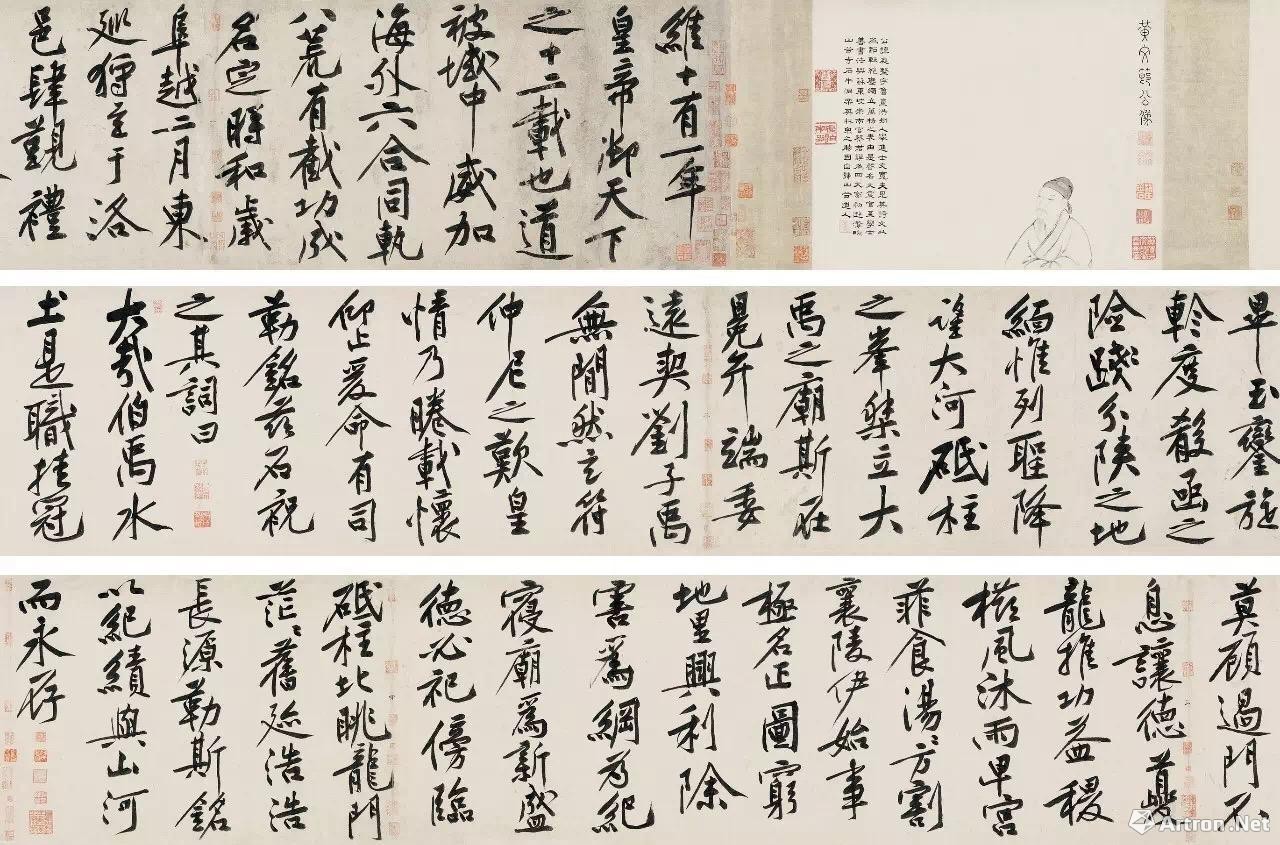 黃文節公像
山谷寺石牛洞樂其林泉之勝因自號山谷道人
維十有一年
皇帝御天下
之十二載也道
被域中威加
海外六合同軌
八荒有截功成
名定時和歲
阜越二月東
巡狩至于洛
邑肆覲禮
畢玉鑾旋
軫度殽函之
險踐分陝之地
緬惟列聖降
望大河砥柱
之峯桀立大
禹之廟斯在
冕弁端委
遠契劉子禹
無間然玄符
仲尼之歎皇
情乃睠載懷
仰止爰命有司
勒銘茲石祝
之其詞曰
大哉伯禹水
土是職挂冠
莫顧過門不
息讓德夔
龍推功益稷
櫛風沐雨卑宮
菲食湯湯方割
襄陵伊始事
極名正圖窮
地里興利除
害為綱為紀
寢廟為新盛
德必祀傍臨
砥柱北眺龍門
茫茫舊跡浩浩
長源勒斯銘
以紀績與山河
而永存
Artron.Net